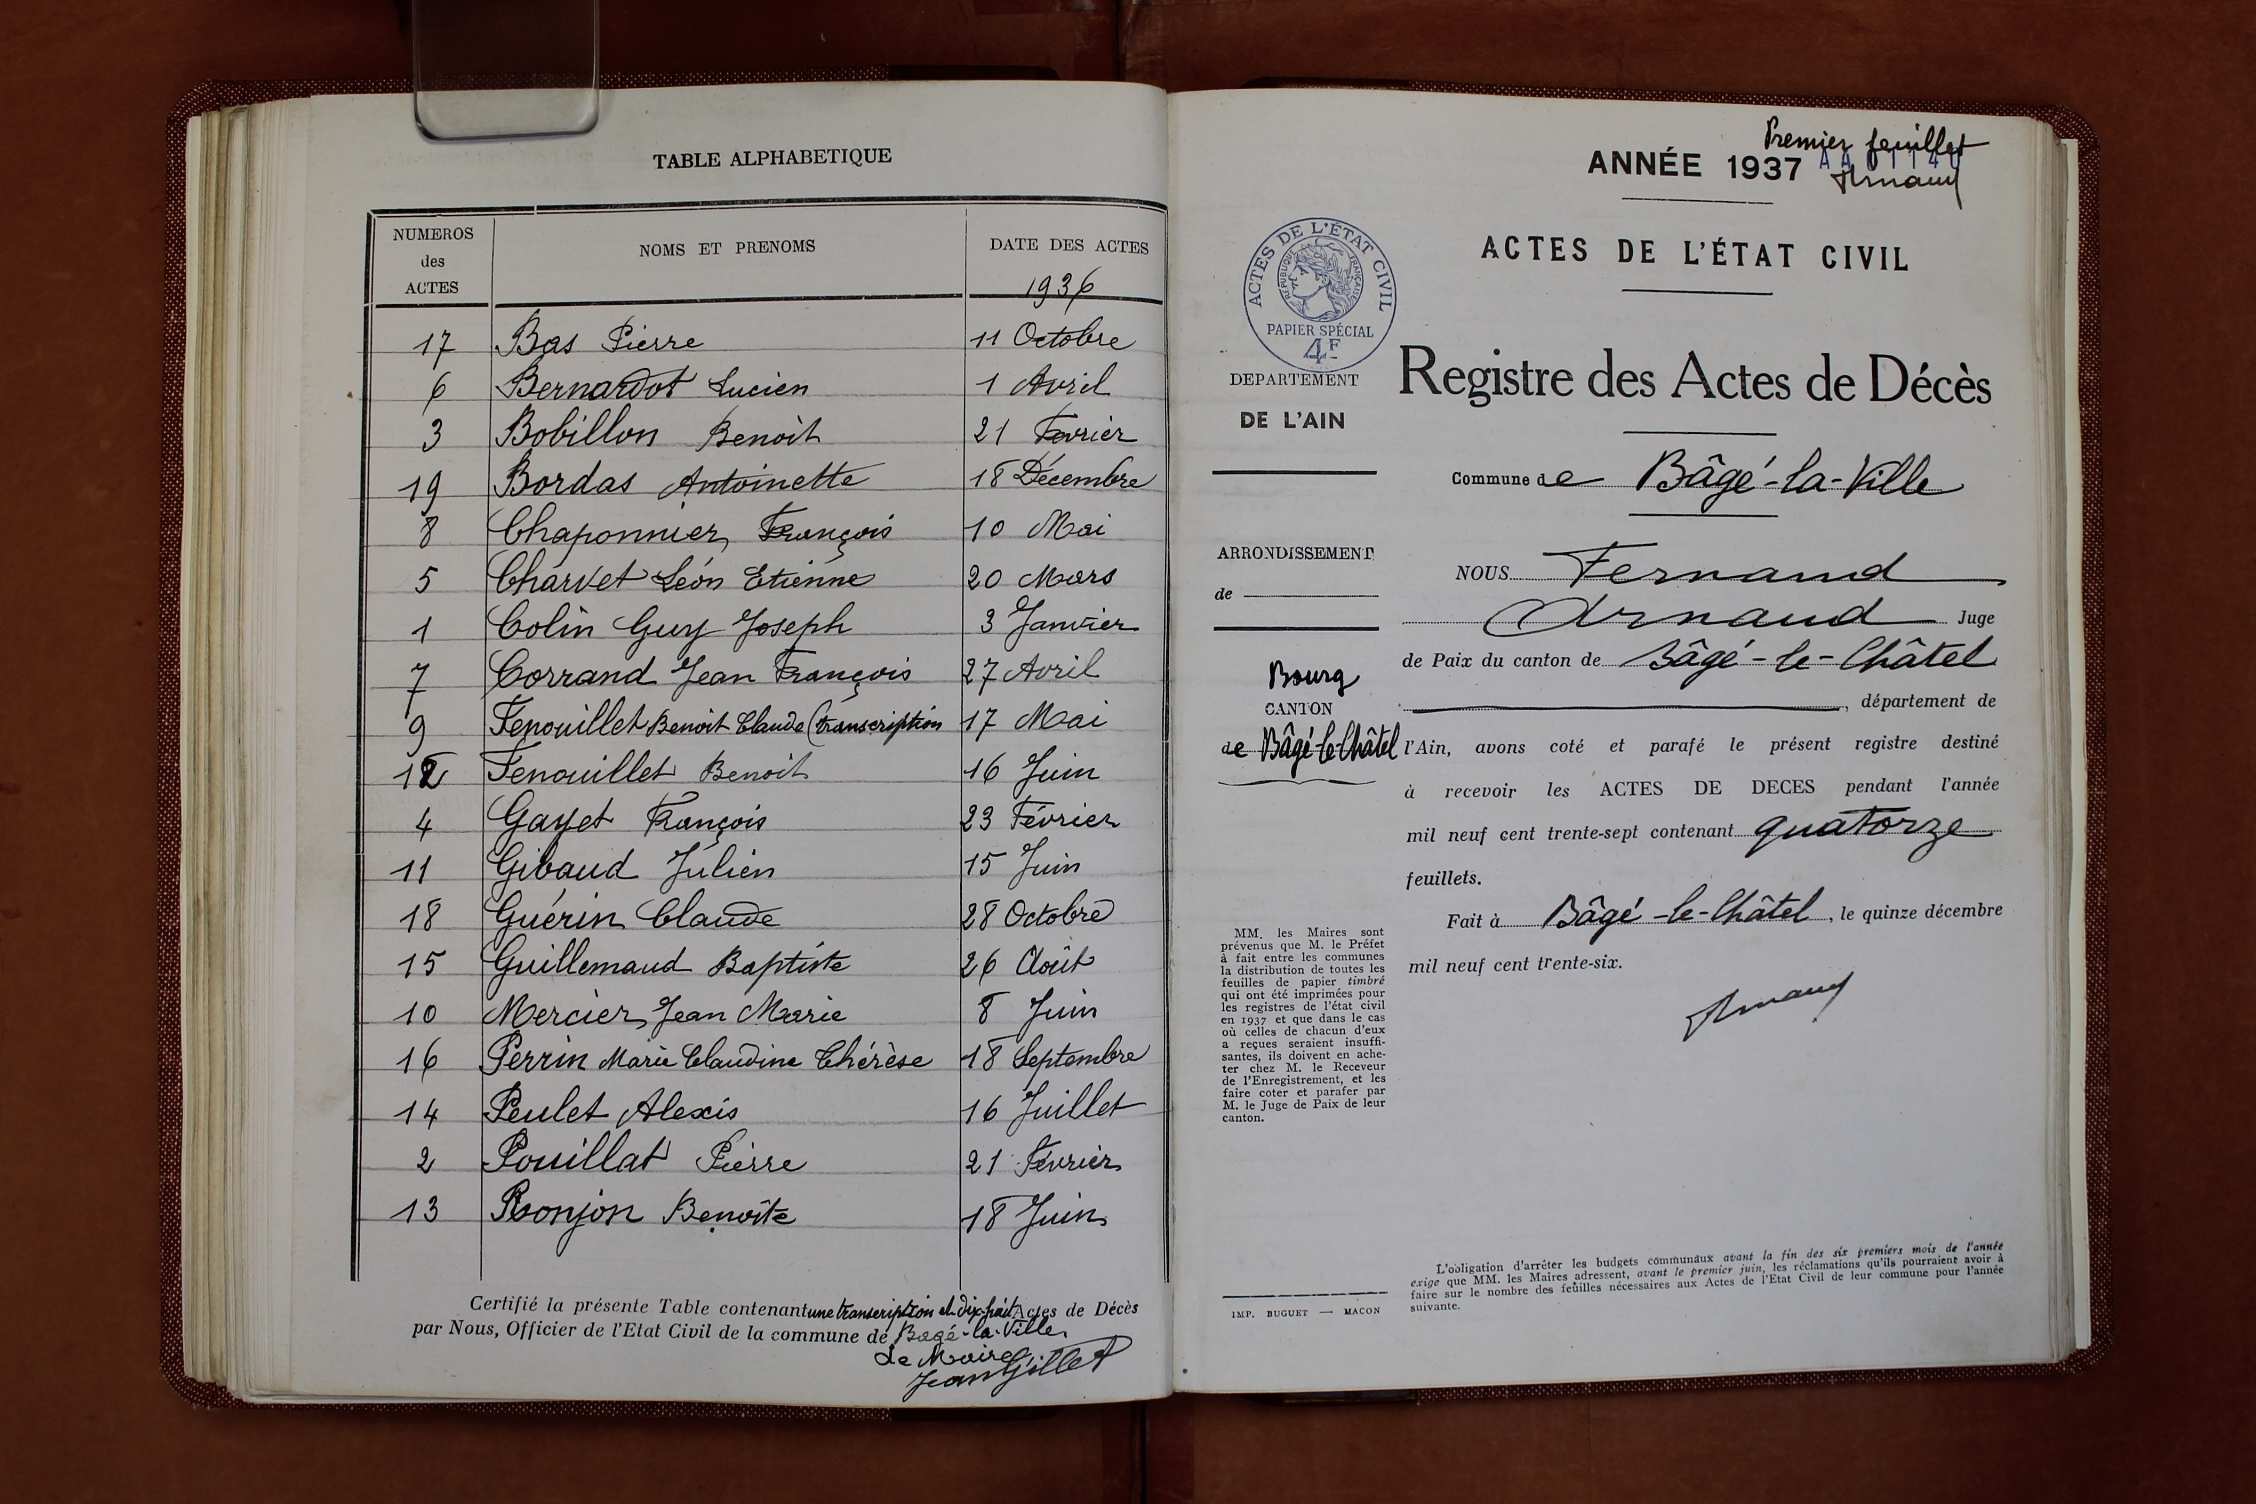 TABLE ALPHABETIQUE
NUMEROS des ACTES NOMS ET PRENOMS DATE DES ACTES
1936
17 Bas Pierre 11 Octobre
6 Bernardot Lucien 1 Avril
3 Bobillon Benoit 21 Fevrier
19 Bordas Antoinette 18 Décembre
8 Chaponnier François 10 Mai
5 Charvet Léon Etienne 20 Mars
1 Colin Guy Joseph 3 Janvier
7 Corrand Jean François 27 Avril
9 Fenouillet Benoit Claude (transcription 17 Mai
12 Fenouillet Benoit 16 Juin
4 Gayet François 23 Février
11 Gibaud Julien 15 Juin
18 Guérin Claude 28 Octobre
15 Guillemaud Baptiste 26 Août
10 Mercier Jean Marie 8 Juin
16 Perrin Marie Claudine Thérèse 18 Septembre
14 Peulet Alexis 16 Juillet
2 Pouillat Pierre 21 Février
13 Ronjon Benoîte 18 Juin
Certifié la présente Table contenant une transcription et dix-huit Actes de Décès
par Nous, Officier de l'Etat Civil de la commune de Bagé-la-Ville
Le Maire
Jean Gillet
Premier feuillet
ANNÉE 1937 AA 01140
Arnaud
ACTES DE L'ÉTAT CIVIL
ACTES DE L'ÉTAT CIVIL
RÉPUBLIQUE FRANÇAISE
PAPIER SPÉCIAL
4F
DEPARTEMENT
DE L'AIN
ARRONDISSEMENT
de
Bourg
CANTON
de Bâgé-le-Châtel
MM. les Maires sont
prévenus que M. le Préfet
à fait entre les communes
la distribution de toutes les
feuilles de papier timbré
qui ont été imprimées pour
les registres de l'état civil
en 1937 et que dans le cas
où celles de chacun d'eux
a reçues seraient insuffi-
santes, ils doivent en ache-
ter chez M. le Receveur
de l'Enregistrement, et les
faire coter et parafer par
M. le Juge de Paix de leur
canton.
IMP. BUGUET — MACON
Registre des Actes de Décès
Commune de Bâgé-la-Ville
NOUS Fernand
Arnaud Juge
de Paix du canton de Bâgé-le-Châtel
, département de
l'Ain, avons coté et parafé le présent registre destiné
à recevoir les ACTES DE DECES pendant l'année
mil neuf cent trente-sept contenant quatorze
feuillets.
Fait à Bâgé-le-Châtel, le quinze décembre
mil neuf cent trente-six.
Arnaud
L'obligation d'arrêter les budgets communaux avant la fin des six premiers mois de l'année
exige que MM. les Maires adressent, avant le premier juin, les réclamations qu'ils pourraient avoir à
faire sur le nombre des feuilles nécessaires aux Actes de l'Etat Civil de leur commune pour l'année
suivante.